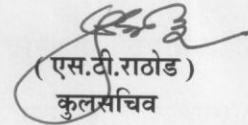 ( एस.टी.राठोड )
कुलसचिव